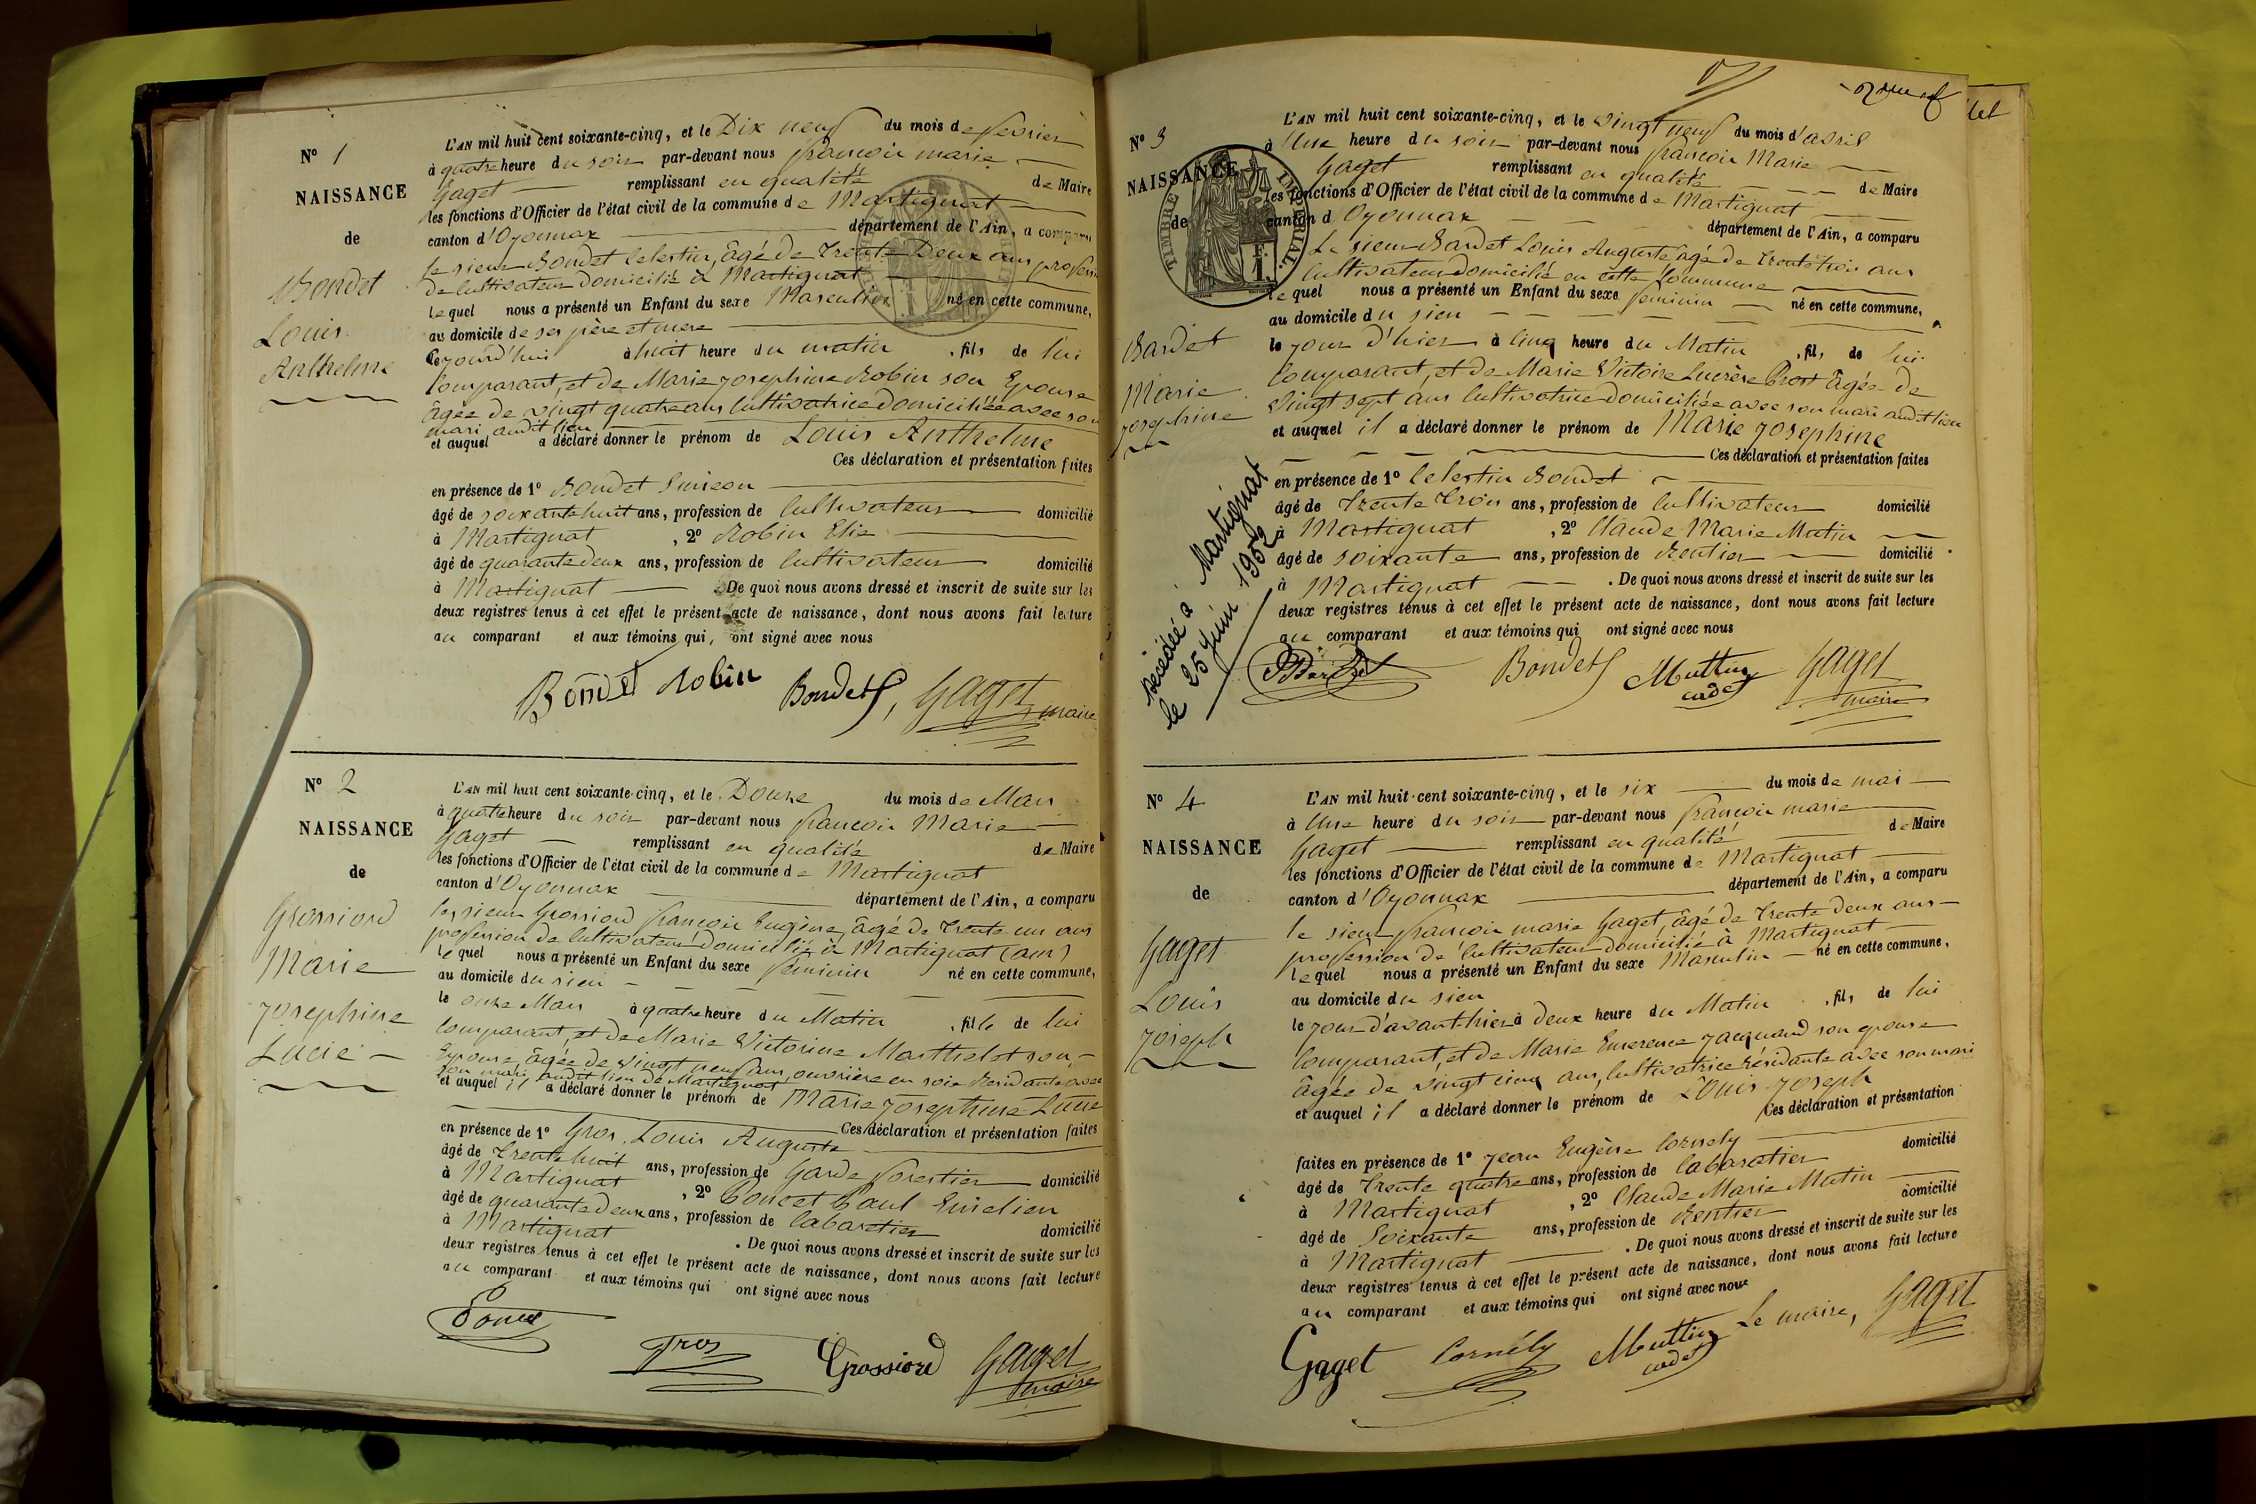 N° 1
NAISSANCE
de
Bondet
Louis
Anthelme
L'AN mil huit cent soixante-cinq, et le Dix neuf du mois de fevrier
à quatre heure du soir par-devant nous françois marie
Gaget remplissant en qualité de Maire
les fonctions d'Officier de l'état civil de la commune de Martignat
canton d'Oyonnax département de l'Ain, a comparu
le sieur Bondet Celestin, âgé de Trente Deux ans profession
de Cultivateur domicilié à Martignat
lequel nous a présenté un Enfant du sexe Masculin né en cette commune,
au domicile de ses père et mere
le jourd'hui à huit heure du matin , fils de lui
Comparant, et de Marie josephine Robin son Epouse
âgée de vingt quatre ans Cultivatrice domiciliée avec son
mari audit lieu
et auquel a déclaré donner le prénom de Louis Anthelme
Ces déclaration et présentation faites
en présence de 1° Bondet Simeon
âgé de soixante huit ans, profession de Cultivateur domicilié
à Martignat , 2° Robin Elie
âgé de quarante deux ans, profession de Cultivateur domicilié
à Martignat . De quoi nous avons dressé et inscrit de suite sur les
deux registres tenus à cet effet le présent acte de naissance, dont nous avons fait lecture
au comparant et aux témoins qui, ont signé avec nous
Bondet Robin Bondet, Gaget maire
N° 2
NAISSANCE
de
Grossiord
Marie
Josephine
Lucie
L'AN mil huit cent soixante-cinq, et le Douze du mois de Mars
à quatre heure du soir par-devant nous françois Marie
Gaget remplissant en qualité de Maire
les fonctions d'Officier de l'état civil de la commune de Martignat
canton d'Oyonnax département de l'Ain, a comparu
le sieur Grossiord françois Eugène, âgé de Trente un ans
profession de Cultivateur domicilié à Martignat (ain)
lequel nous a présenté un Enfant du sexe féminin né en cette commune,
au domicile du sien
le onze Mars à quatre heure du Matin , fille de lui
Comparant, et de Marie Victorine Marthelet son
Epouse, âgée de vingt neuf ans, ouvrière en soie Residante avec
son mari audit lieu de Martignat
et auquel il a déclaré donner le prénom de Marie Josephine Lucie
Ces déclaration et présentation faites
en présence de 1° Gros, Louis Auguste
âgé de Trente huit ans, profession de Garde forestier domicilié
à Martignat , 2° Poncet Paul Emelien
âgé de quarante deux ans, profession de Cabaretier domicilié
à Martignat . De quoi nous avons dressé et inscrit de suite sur les
deux registres tenus à cet effet le présent acte de naissance, dont nous avons fait lecture
au comparant et aux témoins qui ont signé avec nous
Poncet
Gros Grossiord Gaget
maire
N° 3
NAISSANCE
de
TIMBRE IMPERIAL
F. 1.
Bardet
Marie
josephine
décédée à Martignat
le 25 juin 1952
L'AN mil huit cent soixante-cinq, et le vingt neuf du mois d'avril
à Une heure du soir par-devant nous françois Marie
Gaget remplissant en qualité de Maire
les fonctions d'Officier de l'état civil de la commune de Martignat
canton d'Oyonnax département de l'Ain, a comparu
Le sieur Bardet Louis Auguste âgé de Trente trois ans
Cultivateur domicilié en cette Commune
lequel nous a présenté un Enfant du sexe féminin né en cette commune,
au domicile du sien
le jour d'hier à Cinq heure du Matin , fil, de lui
Comparant, et de Marie Victoire Lucrèce Prost âgée de
vingt sept ans Cultivatrice domiciliée avec son mari audit lieu
et auquel il a déclaré donner le prénom de Marie josephine
Ces déclaration et présentation faites
en présence de 1° Celestin Bondet
âgé de Trente Trois ans, profession de Cultivateur domicilié
à Martignat , 2° Claude Marie Mutin
âgé de soixante ans, profession de Rentier domicilié
à Martignat . De quoi nous avons dressé et inscrit de suite sur les
deux registres tenus à cet effet le présent acte de naissance, dont nous avons fait lecture
au comparant et aux témoins qui ont signé avec nous
Bardet Bondet Muttin cadet Gaget
maire
N° 4
NAISSANCE
de
Gaget
Louis
Joseph
L'AN mil huit cent soixante-cinq, et le six du mois de mai
à Une heure du soir par-devant nous françois marie
Gaget remplissant en qualité de Maire
les fonctions d'Officier de l'état civil de la commune de Martignat
canton d'Oyonnax département de l'Ain, a comparu
le sieur françois marie Gaget, âgé de Trente deux ans
profession de Cultivateur domicilié à Martignat
lequel nous a présenté un Enfant du sexe Masculin né en cette commune,
au domicile du sien
le jour d'avant hier à deux heure du Matin , fils de lui
Comparant, et de Marie Emerence Jacquand son epouse
âgée de vingt cinq ans, Cultivatrice résidante avec son mari
et auquel il a déclaré donner le prénom de Louis Joseph
Ces déclaration et présentation
faites en présence de 1° Jean Eugène Cornely
âgé de Trente quatre ans, profession de Cabaretier domicilié
à Martignat , 2° Claude Marie Mutin
âgé de Soixante ans, profession de Rentier domicilié
à Martignat . De quoi nous avons dressé et inscrit de suite sur les
deux registres tenus à cet effet le présent acte de naissance, dont nous avons fait lecture
au comparant et aux témoins qui ont signé avec nous
Gaget Cornély Muttin cadet Le maire, Gaget